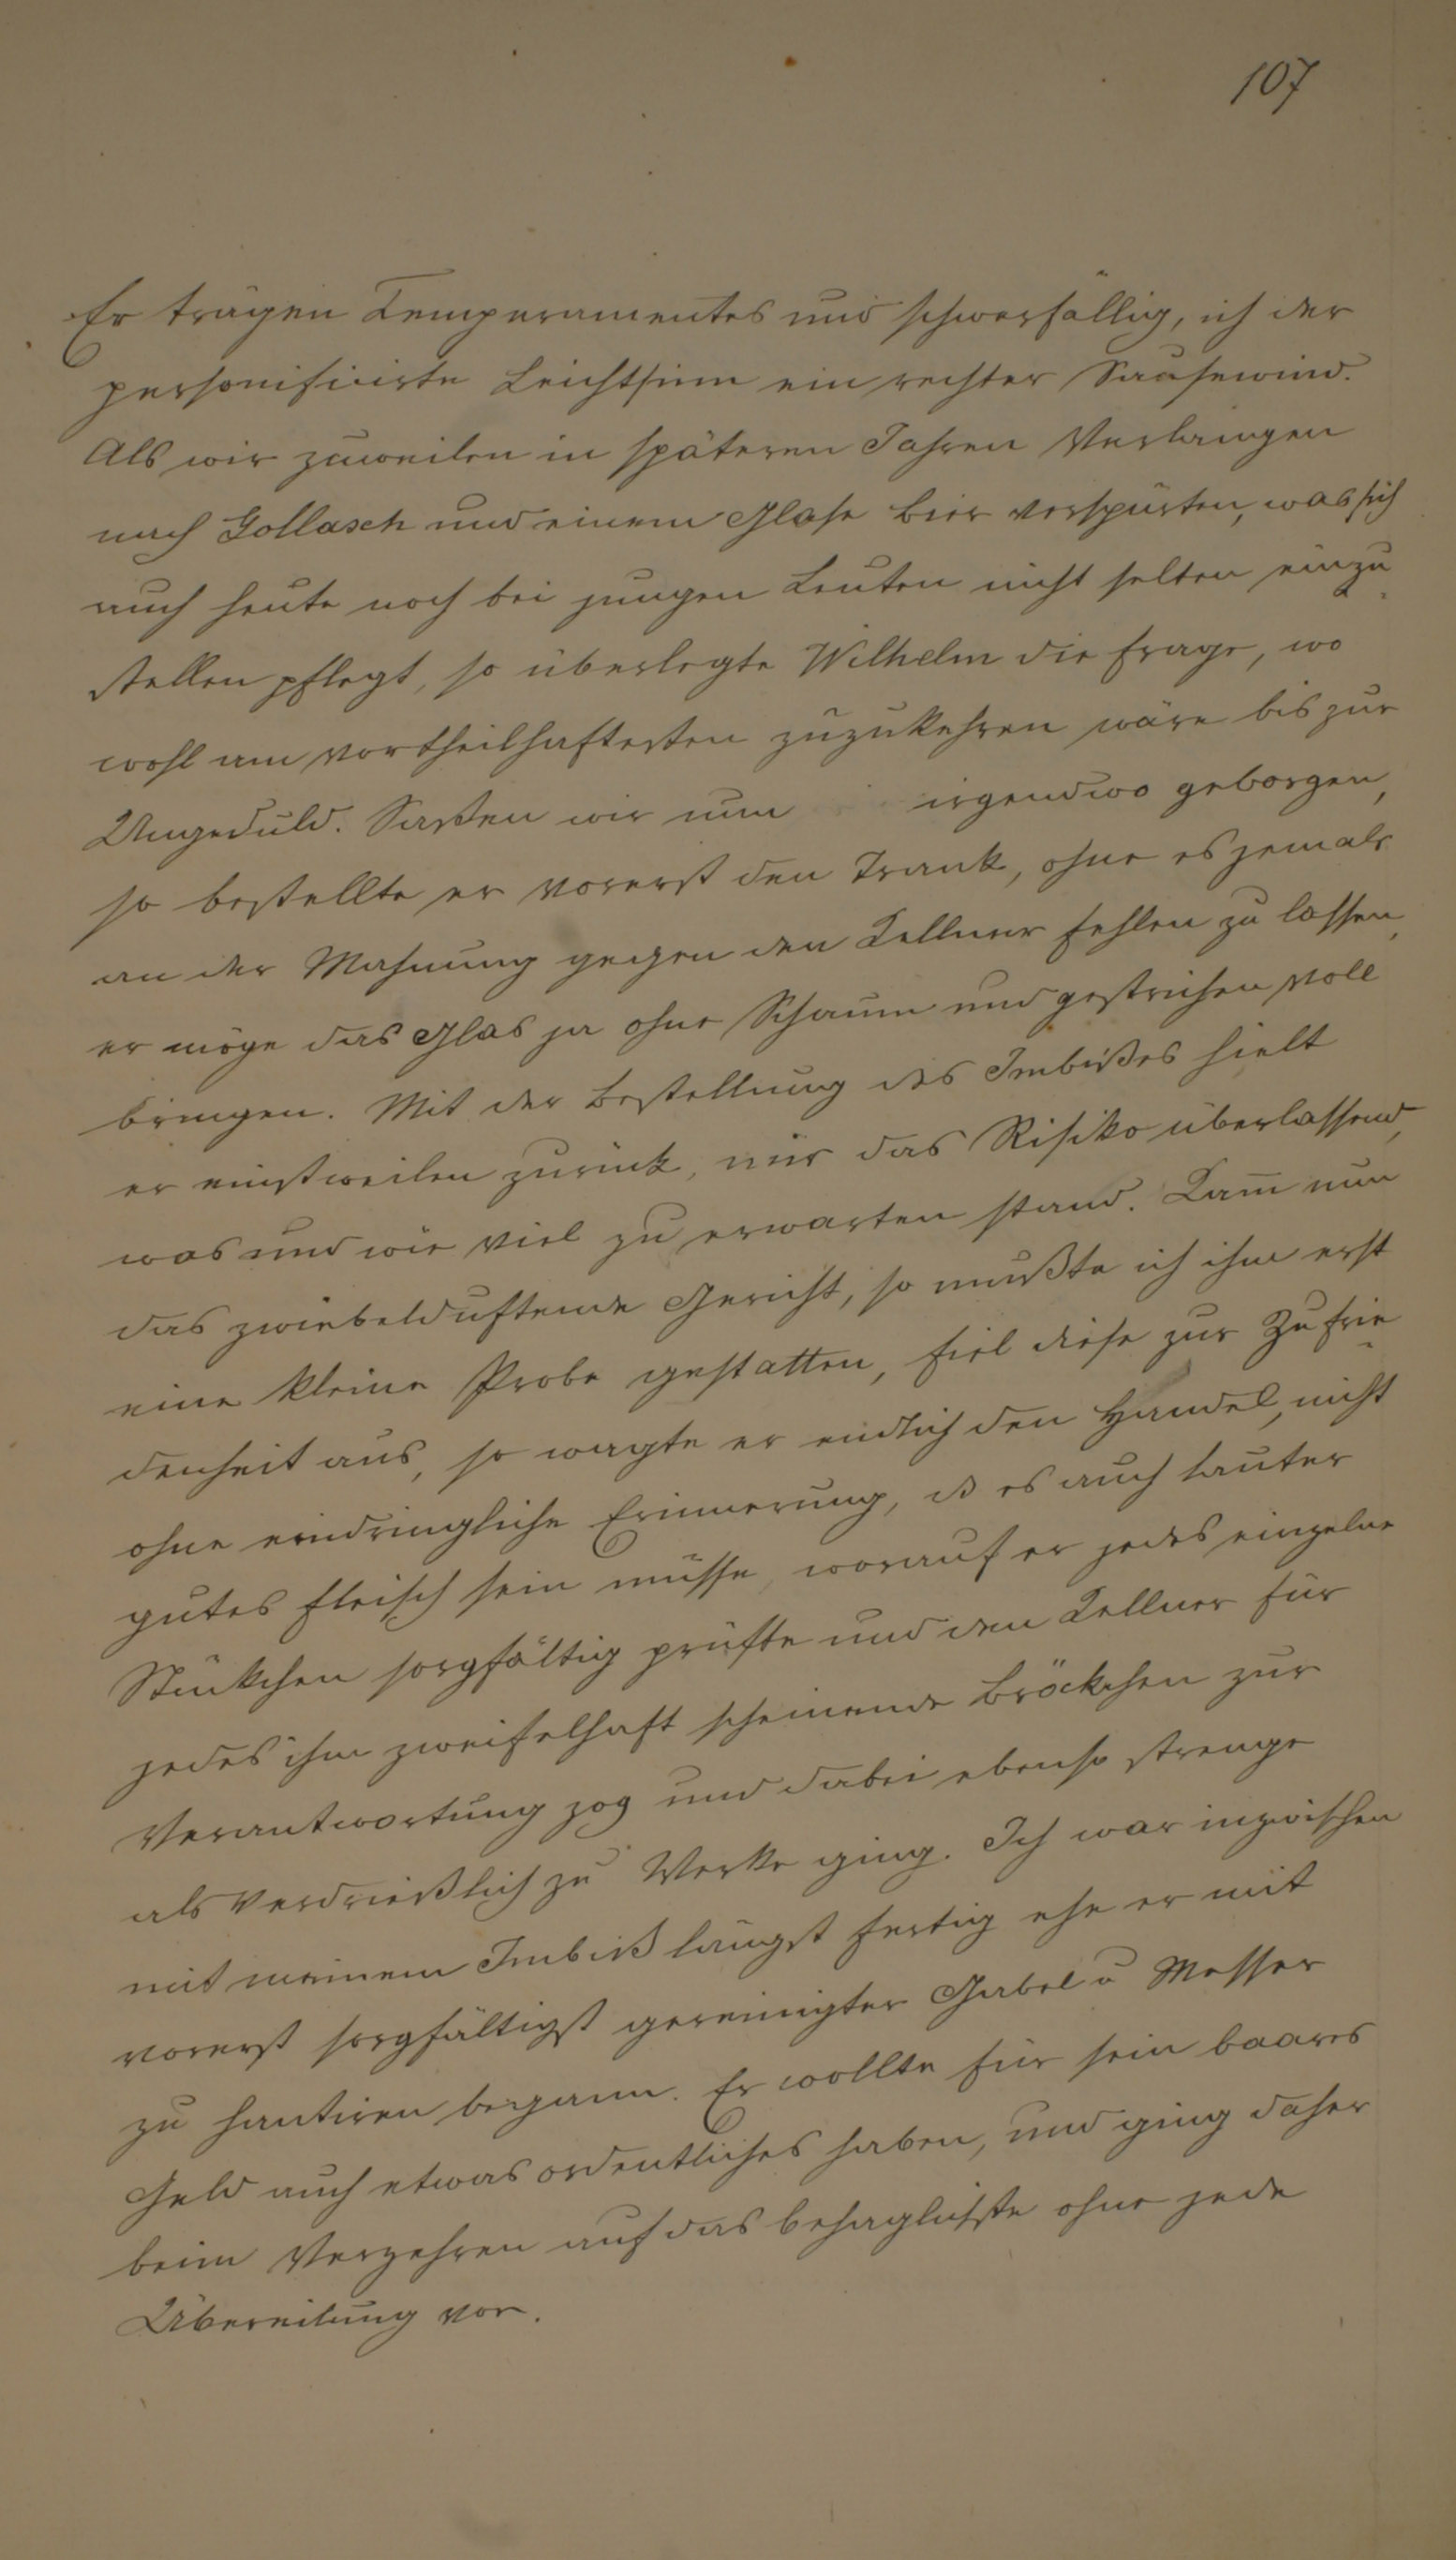 107
Er trägen Temperamentes und schwerfällig, ich der
personificirte Leichtsinn ein rechter Sausewind.
Als wir zuweilen in späteren Jahren Verlangen
nach Gollasch und einem Glase Bier verspürten, was sich
auch heute noch bei jungen Leuten nicht selten einzu-
stellen pflegt, so überlegte Wilhelm die Frage, wo
wohl am vortheilhaftesten zuzukehren wäre bis zur
Ungeduld. Saßen wir nun irgendwo geborgen,
so bestellte er vorerst den Trank, ohne es jemals
an der Mahnung gegen den Kellner fehlen zu lassen,
er möge das Glas ja ohne Schaum und gestrichen voll
bringen. Mit der Bestellung des Imbißes hielt
er einstweilen zurück, mir das Risiko überlassend,
was und wie viel zu erwarten stand. Kam̄ nun
das zwiebelduftende Gericht, so mußte ich ihm erst
eine kleine Probe gestatten, fiel diese zur Zufrie-
denheit aus, so wagte er endlich den Handel, nicht
ohne eindringliche Erinnerung, dß es auch lauter
gutes Fleisch sein müsse, worauf er jedes einzelne
Stückchen sorgfältig prüfte und den Kellner für
jedes ihm zweifelhaft scheinende Bröckchen zur
Verantwortung zog und dabei ebenso strenge
als verdrießlich zu Werke ging. Ich war inzwischen
mit meinem Imbiß längst fertig ehe er mit
vorerst sorgfältigst gereinigter Gabel u Messer
zu hantiren begann. Er wollte für sein baares
Geld auch etwas ordentliches haben, und ging daher
beim Verzehren auf das behaglichste ohne jede
Übereilung vor.